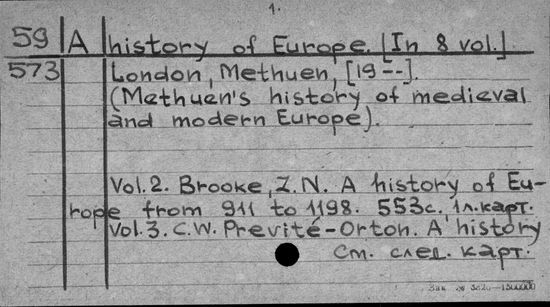 1.
59 A history of Europe. [In 8 vol.]
573 London, Methuen, [19--].
(Methuen's history of medieval
and modern Europe).
Vol. 2. Brooke, Z. N. A history of Eu-
rope from 911 to 1198. 553с. 1л.карт.
Vol. 3. C. W. Previté-Orton. A history
См. след. карт.